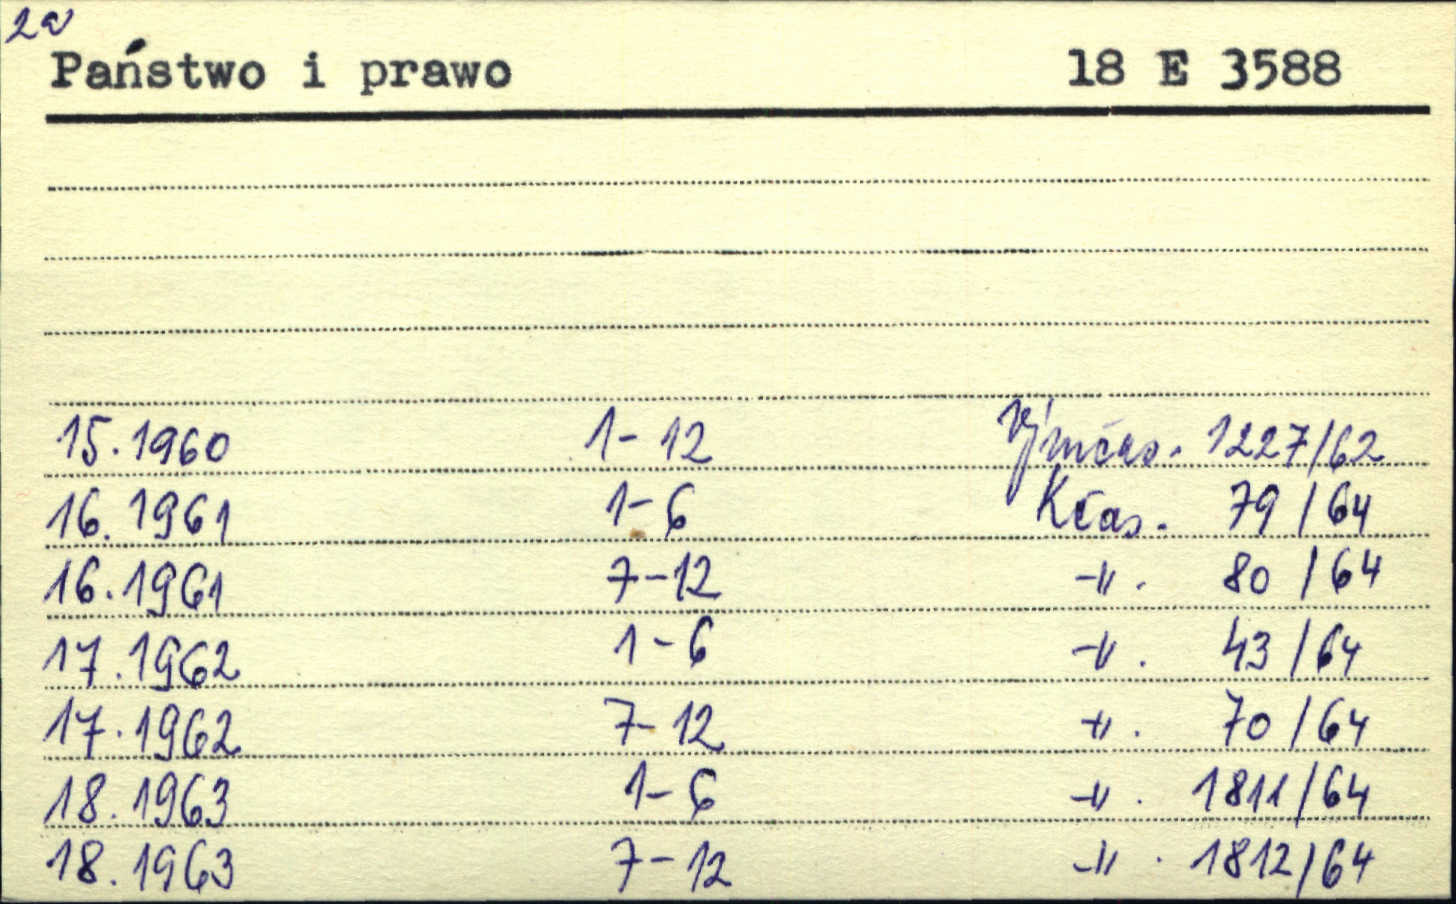 2a
Państwo i prawo 18 E 3588
15.1960 1-12 Výměčas. 1227/62
16.1961 1-6 Kčas. 79/64
16.1961 7-12 -"- 80/64
17.1962 1-6 -"- 43/64
17.1962 7-12 -"- 70/64
18.1963 1-6 -"- 1811/64
18.1963 7-12 -"- 1812/64